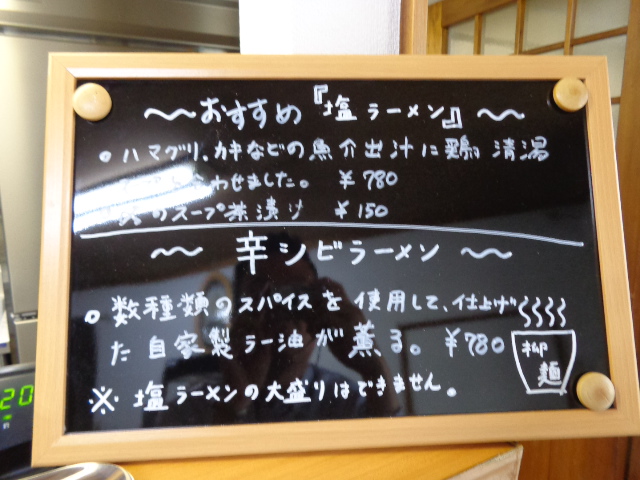 〜おすすめ『塩ラーメン』〜
・ハマグリ、カキなどの魚介出汁に鶏清湯
わせました。 ¥780
のスープ茶漬け ¥150
〜辛シビラーメン〜
○数種類のスパイスを使用して、仕上げ
た自家製ラー油が薫る。¥780
※塩ラーメンの大盛りはできません。
柳
麺
20